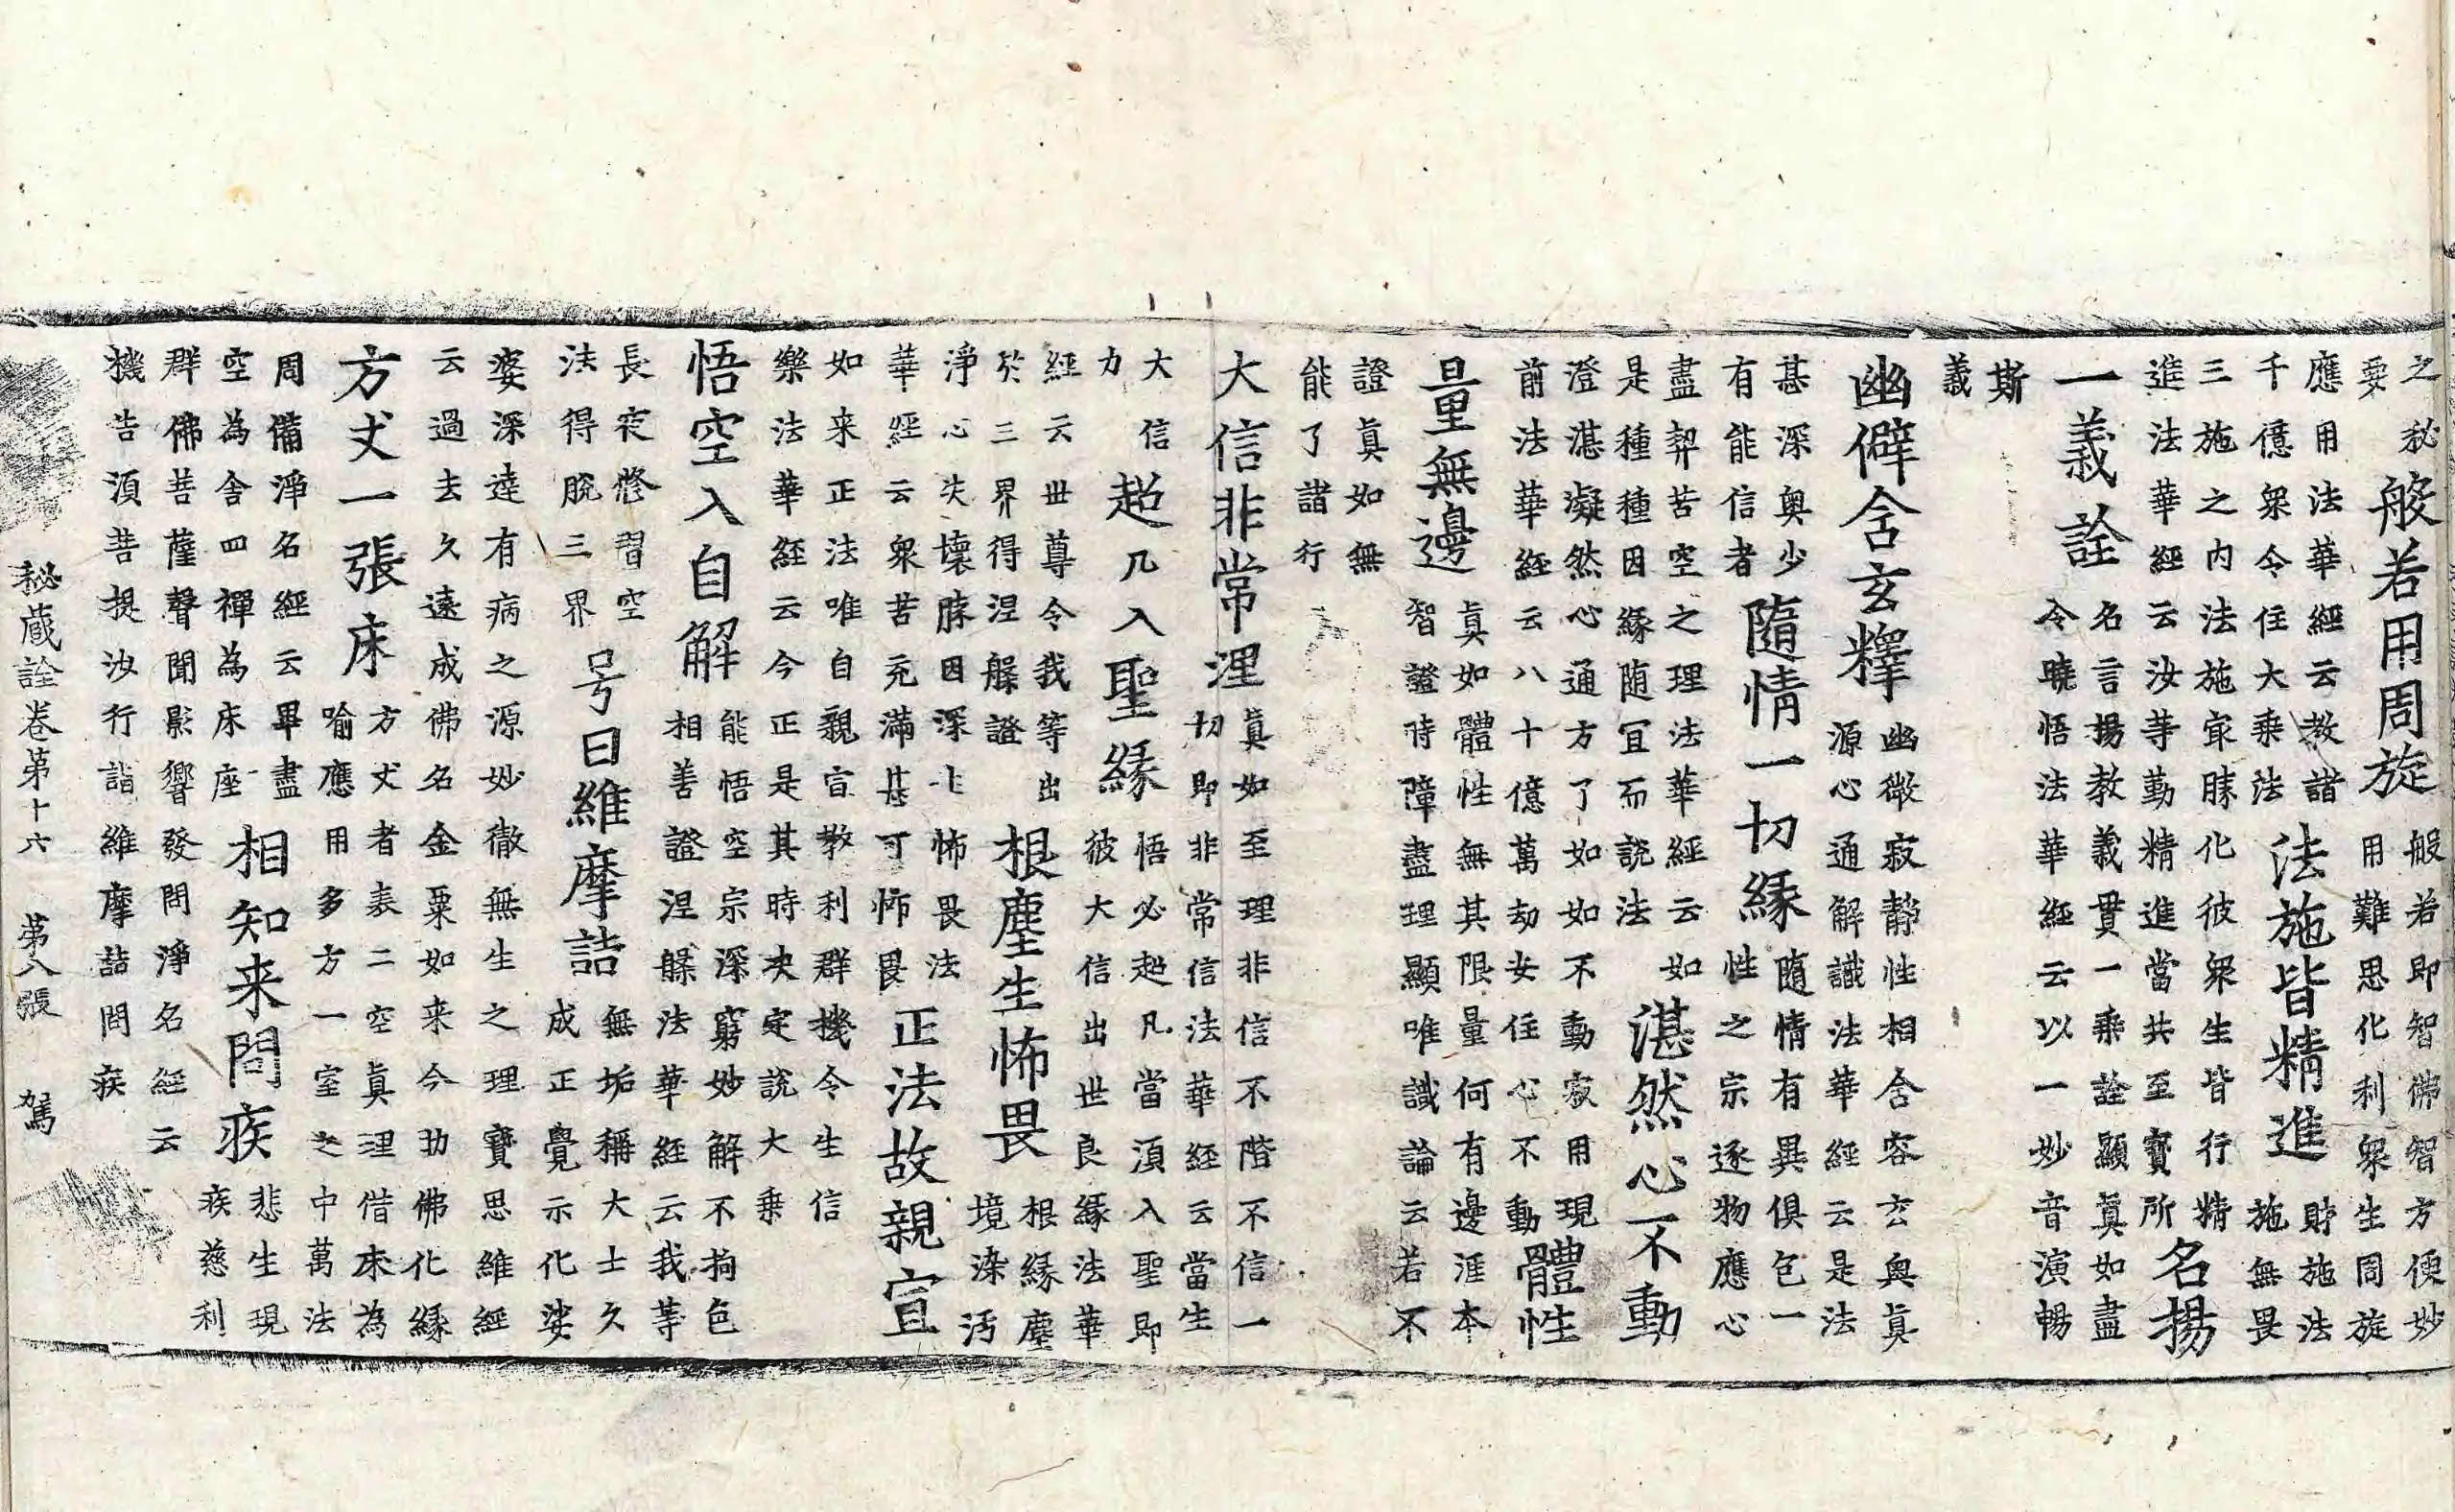 之秘
要
般若用周旋
般若即智佛智方便妙
用難思化利衆生周旋
應用法華經云教諸
千億衆令住大乘法
法施皆精進
財施法
施無畏
三施之内法施冣勝化彼衆生皆行精
進法華經云汝等勤精進當共至寶所
名揚
一義詮
名言揚教義貫一乘詮顯眞如盡
令曉悟法華經云以一妙音演暢
斯
義
幽僻含玄釋
幽微寂静性相含容玄奥眞
源心通解識法華經云是法
甚深奥少
有能信者
隨情一切緣
隨情有異俱包一
性之宗逐物應心
盡契苦空之理法華經云如
是種種因緣随冝而説法
湛然心不動
澄湛凝然心通方了如如不動寂用現
前法華經云八十億萬劫安住心不動
體性
量無邊
眞如體性無其限量何有邊涯本
智證時障盡理顯唯識論云若不
證眞如無
能了諸行
大信非常理
眞如至理非信不階不信一
切即非常信法華經云當生
大信
力
超凡入聖緣
悟必超凡當湏入聖即
彼大信出世良緣法華
經云世尊令我等出
於三界得涅槃證
根塵生怖畏
根緣塵
境染污
淨心失壞勝因深生怖畏法
華經云衆苦充滿甚可怖畏
正法故親宣
如来正法唯自親宣教利群機令生信
樂法華經云今正是其時决定説大乘
悟空入自解
能悟空宗深窮妙解不拘色
相善證涅槃法華經云我等
長夜修習空
法得脱三界
号曰維摩詰
無垢稱大士久
成正覺示化娑
婆深達有病之源妙徹無生之理寶思維經
云過去久遠成佛名金粟如来今助佛化緣
方丈一張床
方丈者表二空眞理借床為
喻應用多方一室之中萬法
周備淨名經云畢盡
空為舍四禪為床座
相知来問疾
悲生現
疾慈利
群佛菩薩聲聞影響發問淨名經云
機告湏菩提汝行詣維摩詰問疾
秘蔵詮卷第十六　第八張　駕